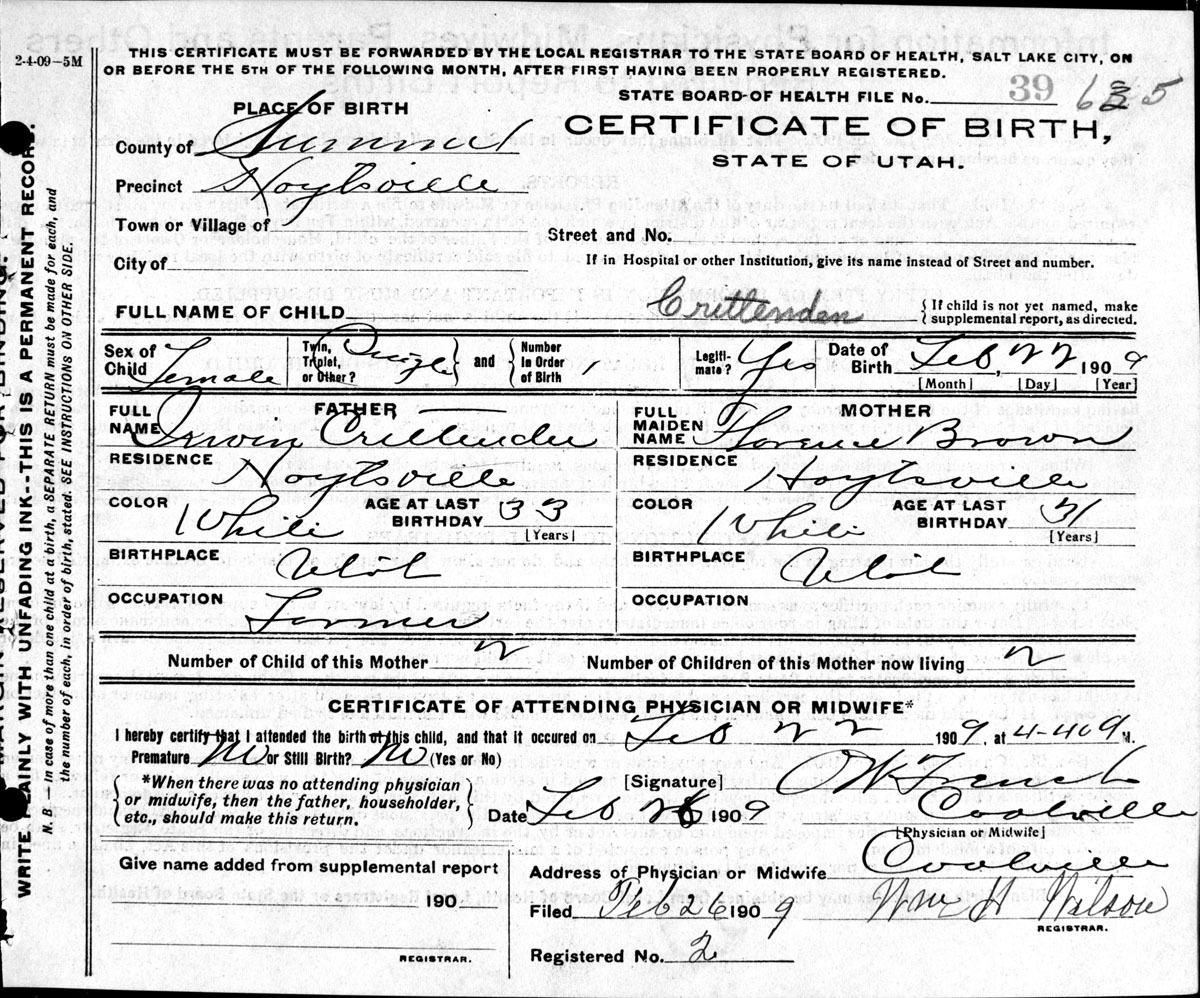 2-4-09—5M
THIS CERTIFICATE MUST BE FORWARDED BY THE LOCAL REGISTRAR TO THE STATE BOARD OF HEALTH, SALT LAKE CITY, ON
OR BEFORE THE 5TH OF THE FOLLOWING MONTH, AFTER FIRST HAVING BEEN PROPERLY REGISTERED.
STATE BOARD OF HEALTH FILE No. 39
PLACE OF BIRTH
CERTIFICATE OF BIRTH,
STATE OF UTAH.
County of Summit
Precinct Hoytsville
Town or Village of
Street and No.
City of
If in Hospital or other Institution, give its name instead of Street and number.
FULL NAME OF CHILD Crittenden { If child is not yet named, make
supplemental report, as directed.
Sex of Child Female Twin, Triplet, or Other? Single and Number in Order of Birth Legitimate? Yes Date of Birth Feb, 22 1909
[Month] [Day] [Year]
FATHER
FULL NAME Irwin Crittenden
RESIDENCE Hoytsville
COLOR White AGE AT LAST BIRTHDAY 33
[Years]
BIRTHPLACE Utah
OCCUPATION Farmer
MOTHER
FULL MAIDEN NAME Florence Brown
RESIDENCE Hoytsville
COLOR White AGE AT LAST BIRTHDAY 31
[Years]
BIRTHPLACE Utah
OCCUPATION
Number of Child of this Mother 2 Number of Children of this Mother now living 2
CERTIFICATE OF ATTENDING PHYSICIAN OR MIDWIFE*
I hereby certify that I attended the birth of this child, and that it occured on Feb 22 1909, at 4-40 M.
Premature No or Still Birth? No (Yes or No)
*When there was no attending physician
or midwife, then the father, householder,
etc., should make this return.
[Signature] French
Date Feb 1909 Coalville
[Physician or Midwife]
Give name added from supplemental report
190
REGISTRAR.
Address of Physician or Midwife Coalville
Filed Feb 26 1909 Wm H Wilson
REGISTRAR.
Registered No. 2
WRITE PLAINLY WITH UNFADING INK--THIS IS A PERMANENT RECORD.
N. B.—In case of more than one child at a birth, a SEPARATE RETURN must be made for each, and
the number of each, in order of birth, stated. SEE INSTRUCTIONS ON OTHER SIDE.